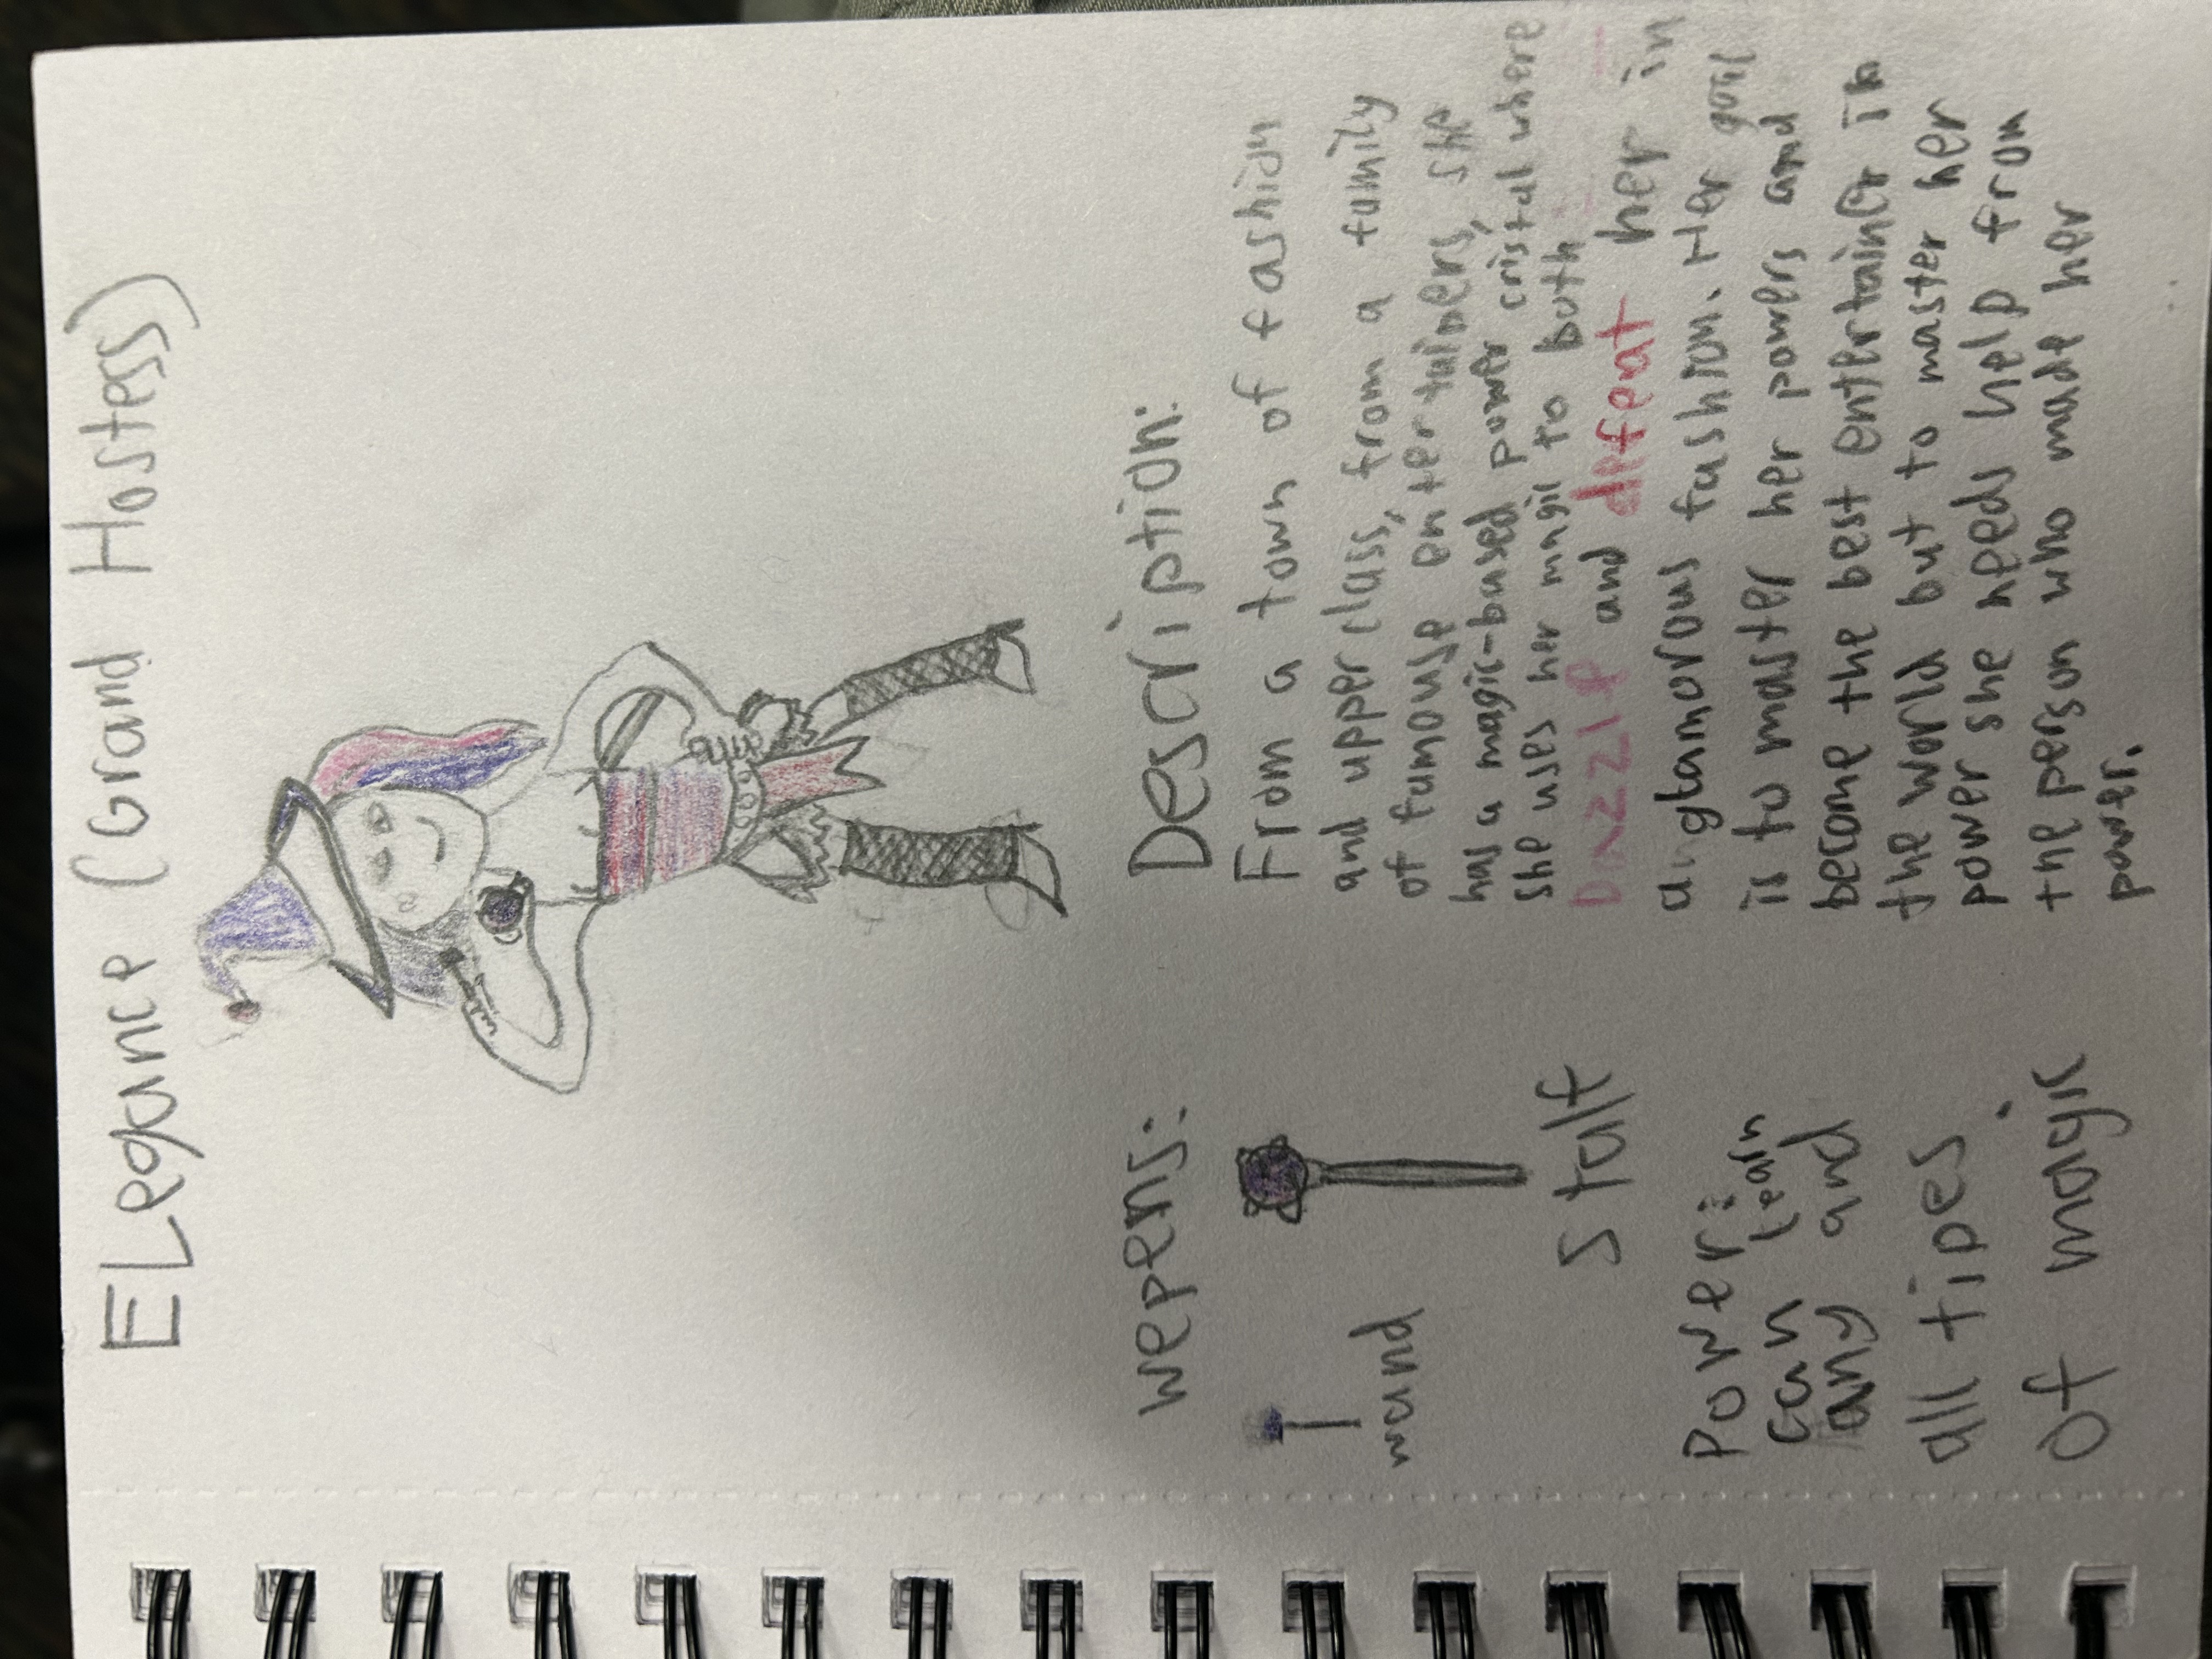 ELegance (Grand Hostess)
wepens:
wand
Stalf
Power:
can learn
any and
all tipes
of magic
Description:
From a town of fashion
and upper class, from a family
of famouse entertainers, she
has a magic-based power cristal where
she uses her magic to both
Dazzle and defeat her in
an glamorous fashion. Her goal
is to master her powers and
become the best entertainer in
the world but to master her
power she needs help from
the person who made her
power.